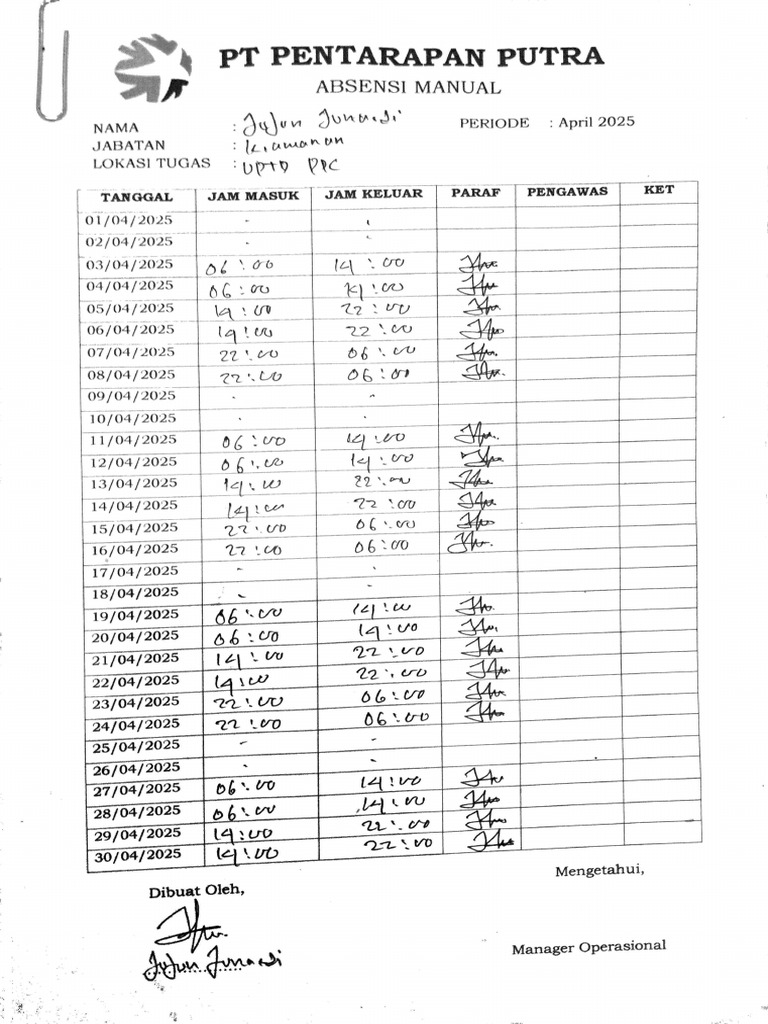 PT PENTARAPAN PUTRA
ABSENSI MANUAL
NAMA : Jujun Junaedi PERIODE : April 2025
JABATAN : Keamanan
LOKASI TUGAS : UPTD PPC
TANGGAL JAM MASUK JAM KELUAR PARAF PENGAWAS KET
01/04/2025 - -
02/04/2025 - -
03/04/2025 06:00 14:00
04/04/2025 06:00 14:00
05/04/2025 14:00 22:00
06/04/2025 14:00 22:00
07/04/2025 22:00 06:00
08/04/2025 22:00 06:00
09/04/2025 - -
10/04/2025 - -
11/04/2025 06:00 14:00
12/04/2025 06:00 14:00
13/04/2025 14:00 22:00
14/04/2025 14:00 22:00
15/04/2025 22:00 06:00
16/04/2025 22:00 06:00
17/04/2025 - -
18/04/2025 - -
19/04/2025 06:00 14:00
20/04/2025 06:00 14:00
21/04/2025 14:00 22:00
22/04/2025 14:00 22:00
23/04/2025 22:00 06:00
24/04/2025 22:00 06:00
25/04/2025 - -
26/04/2025 - -
27/04/2025 06:00 14:00
28/04/2025 06:00 14:00
29/04/2025 14:00 22:00
30/04/2025 14:00 22:00
Mengetahui,
Dibuat Oleh,
Manager Operasional
Jujun Junaedi